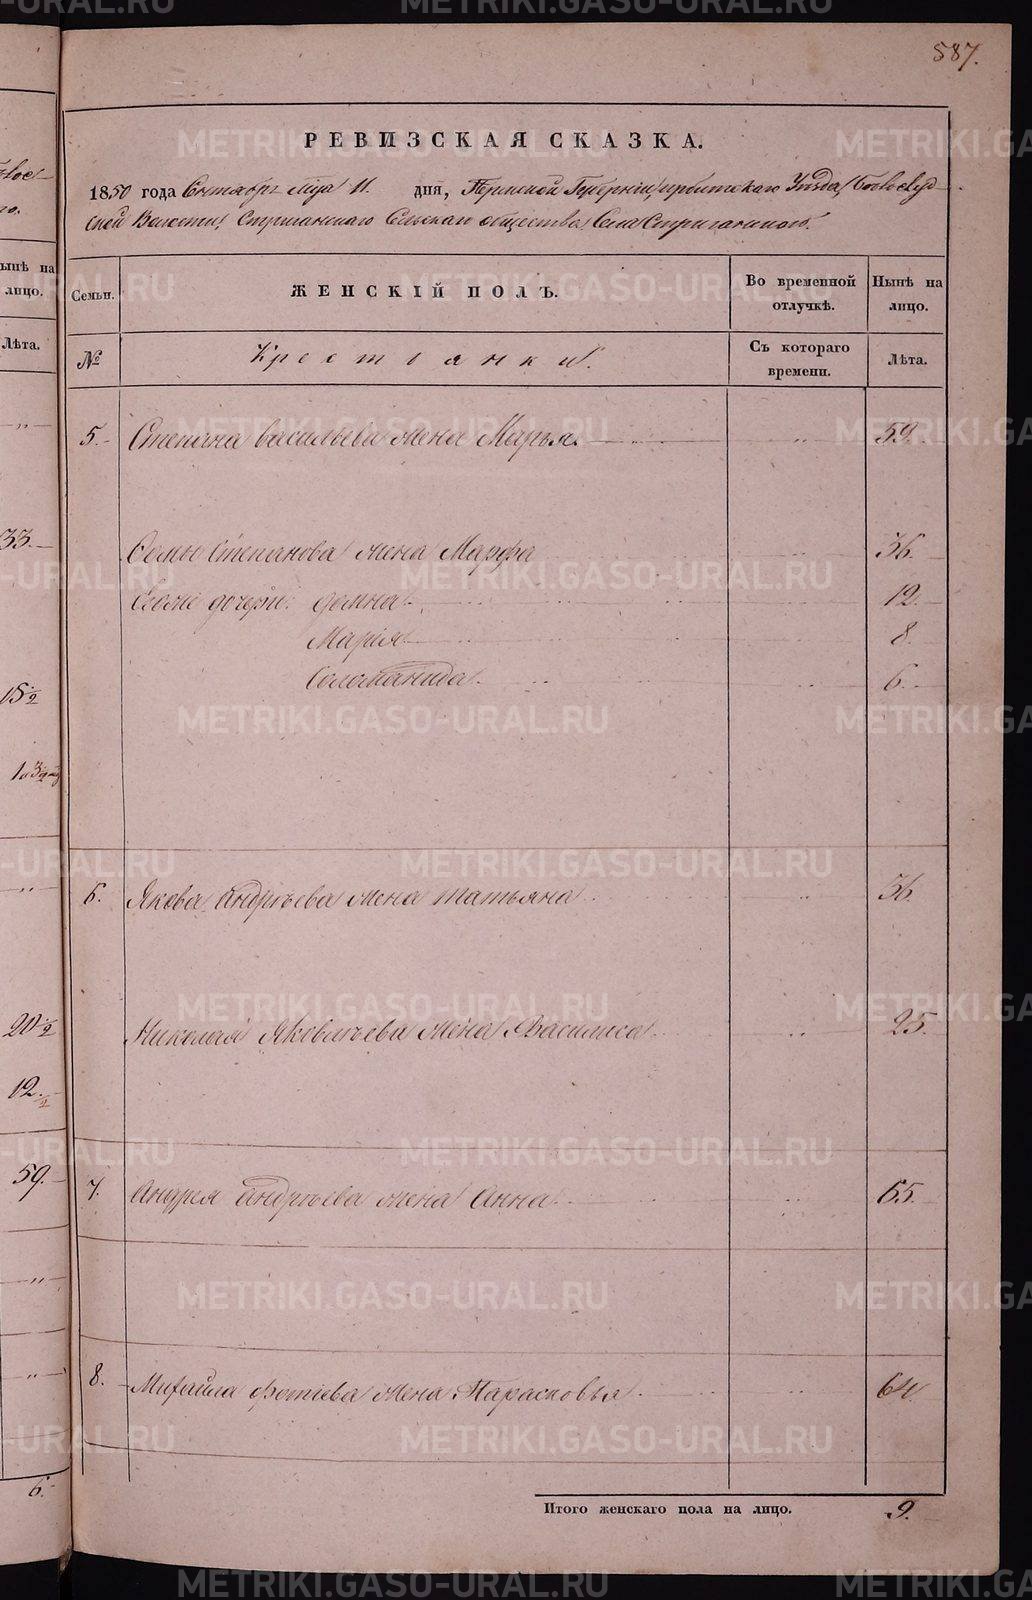 587.
РЕВИЗСКАЯ СКАЗКА.
1850 года Сентября м̃ца 11 дня, Пермской Губерніи, ирбитскаго Уѣзда,
ской Волости, Стриганскаго Сельскаго общества, Села Стриганскаго.
Семьи. ЖЕНСКІЙ ПОЛЪ. Во временной отлучкѣ. Нынѣ на лицо.
№ Крестьянки. Съ котораго времени. Лѣта.
5. Степана васильева жена Марья. 59.
жена Марфа 36.
дочери: домна 12.
Марія 8.
Соломанида 6.
6. Якова андрѣева жена татьяна 36.
Николая Яковлева жена Василиса 25.
7. Андрея андрѣева жена Анна 65.
8. Михайла фотіева жена Парасковья 64.
Итого женскаго пола на лицо. 9.
ынѣ на
лицо.
Лѣта.
33.
15 1/2
20 1/2
12
59.
6.
METRIKI.GASO-URAL.RU